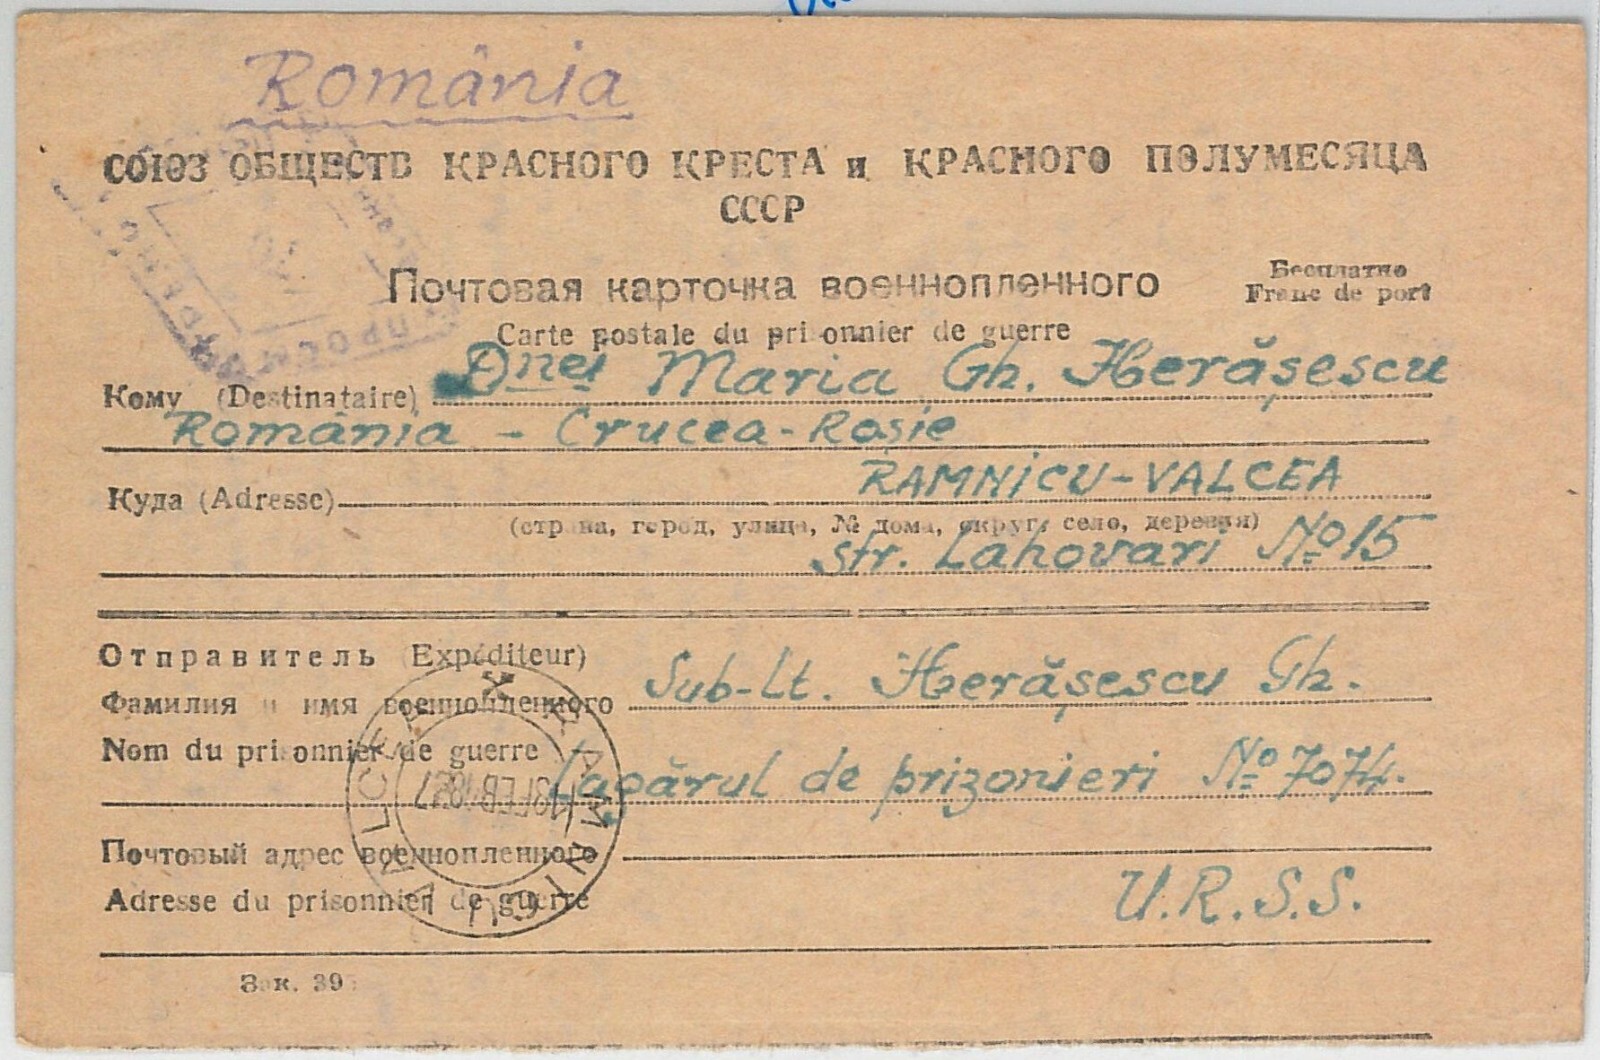 România
СОЮЗ ОБЩЕСТВ КРАСНОГО КРЕСТА и КРАСНОГО ПОЛУМЕСЯЦА
СССР
Почтовая карточка военнопленного
Бесплатно
Franc de port
Carte postale du prisonnier de guerre
Кому (Destinataire) Dnei Maria Gh. Herăşescu
România - Crucea-Rosie
Куда (Adresse) RAMNICU-VALCEA
(страна, город, улица, № дома, округ, село, деревня)
str. Lahovari No 15
Отправитель (Expéditeur)
Фамилия и имя военнопленного Sub-Lt. Herăşescu Gh.
Nom du prisonnier de guerre Lagărul de prizonieri No 7074.
Почтовый адрес военнопленного
Adresse du prisonnier de guerre U.R.S.S.
Зак. 395